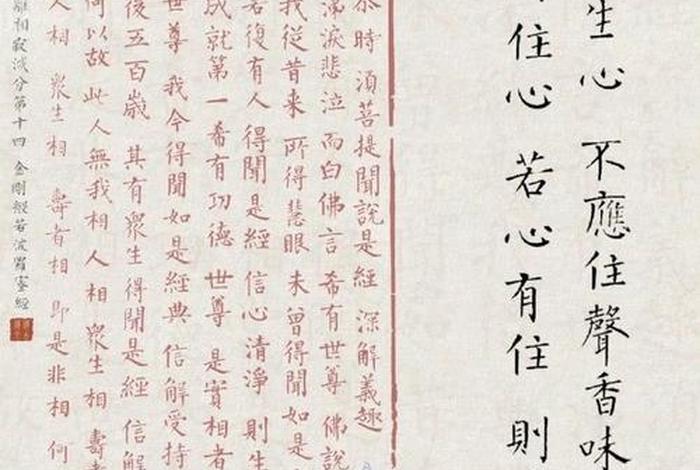 生心 不應住聲香味
住心 若心有住 則
尒時 須菩提聞說是經 深解義趣
涕淚悲泣 而白佛言 希有世尊 佛說
我從昔来 所得慧眼 未曾得聞如是
若復有人 得聞是經 信心清淨 則生
成就第一希有功德 世尊 是實相者
世尊 我今得聞如是經典 信解受持
後五百歲 其有衆生得聞是經 信解
何以故 此人無我相 人相 衆生相 壽者
人相 衆生相 壽者相 即是非相 何
離相寂滅分第十四 金剛般若波羅蜜經